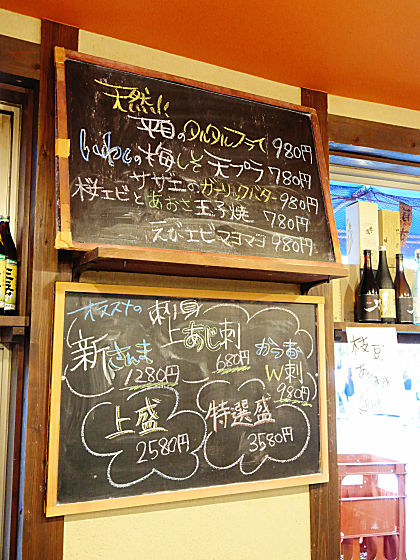 天然!!
平目のタルタルフライ 980円
いわしの梅しそ天プラ 780円
サザエのガーリックバター 980円
桜エビとあおさ玉子焼 780円
えびエビマヨマヨ 980円
オススメ 刺身
新さんま 1280円
上あじ刺 680円
かつお W刺 980円
上盛 2580円
特選盛 3580円
枝豆